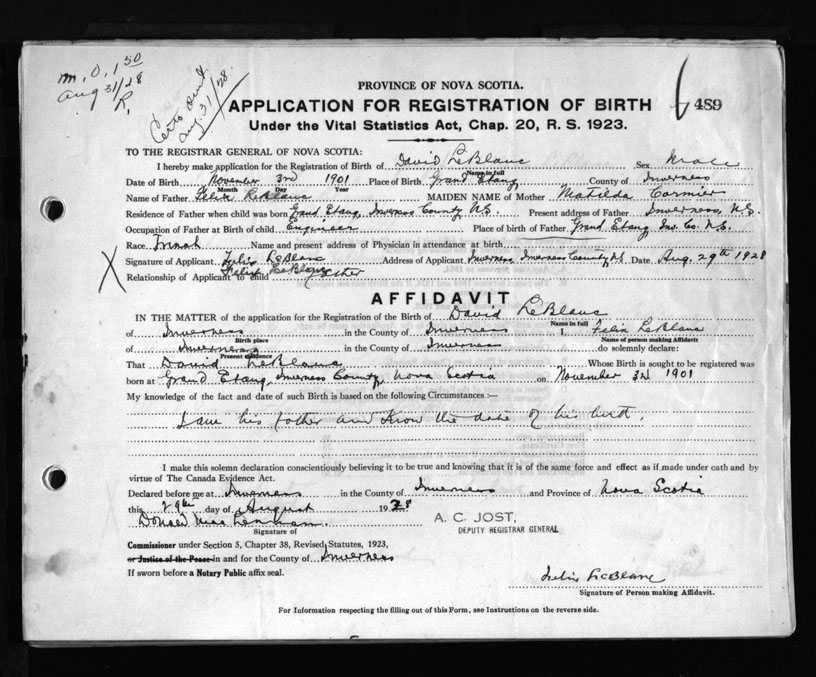 m.O. 1 50
Aug 31/28
R.
Certo Sent
Aug. 31/28.
PROVINCE OF NOVA SCOTIA.
489
APPLICATION FOR REGISTRATION OF BIRTH
Under the Vital Statistics Act, Chap. 20, R. S. 1923.
TO THE REGISTRAR GENERAL OF NOVA SCOTIA:
I hereby make application for the Registration of Birth of David LeBlanc Sex Male
Name in full
Date of Birth November 3rd 1901 Place of Birth Grand Etang County of Inverness
Month Day Year
Name of Father Felix LeBlanc MAIDEN NAME of Mother Matilda Cormier
Residence of Father when child was born Grand Etang, Inverness County N.S. Present address of Father Inverness, N.S.
Occupation of Father at Birth of child Engineer Place of birth of Father Grand Etang Inv. Co. N.S.
Race Name and present address of Physician in attendance at birth
Signature of Applicant Felix LeBlanc Address of Applicant Inverness Inverness County N.S. Date Aug. 29th 1928
Relationship of Applicant to child Felix LeBlanc father
AFFIDAVIT
IN THE MATTER of the application for the Registration of the Birth of David LeBlanc
Name in full
of Inverness in the County of Inverness I, Felix LeBlanc
Birth place Name of person making Affidavit
of Inverness in the County of Inverness do solemnly declare:
Present residence
That David LeBlanc Whose Birth is sought to be registered was
born at Grand Etang, Inverness County, Nova Scotia on November 3rd 1901
My knowledge of the fact and date of such Birth is based on the following Circumstances :—
I am his father and know the date of his birth.
I make this solemn declaration conscientiously believing it to be true and knowing that it is of the same force and effect as if made under oath and by
virtue of The Canada Evidence Act.
Declared before me at Inverness in the County of Inverness and Province of Nova Scotia
this 29th day of August 1928
Donald Mac Lennan.
A. C. JOST,
DEPUTY REGISTRAR GENERAL
Signature of
Commissioner under Section 5, Chapter 38, Revised Statutes, 1923,
or Justice of the Peace in and for the County of Inverness
If sworn before a Notary Public affix seal.
Felix LeBlanc
Signature of Person making Affidavit.
For Information respecting the filling out of this Form, see Instructions on the reverse side.